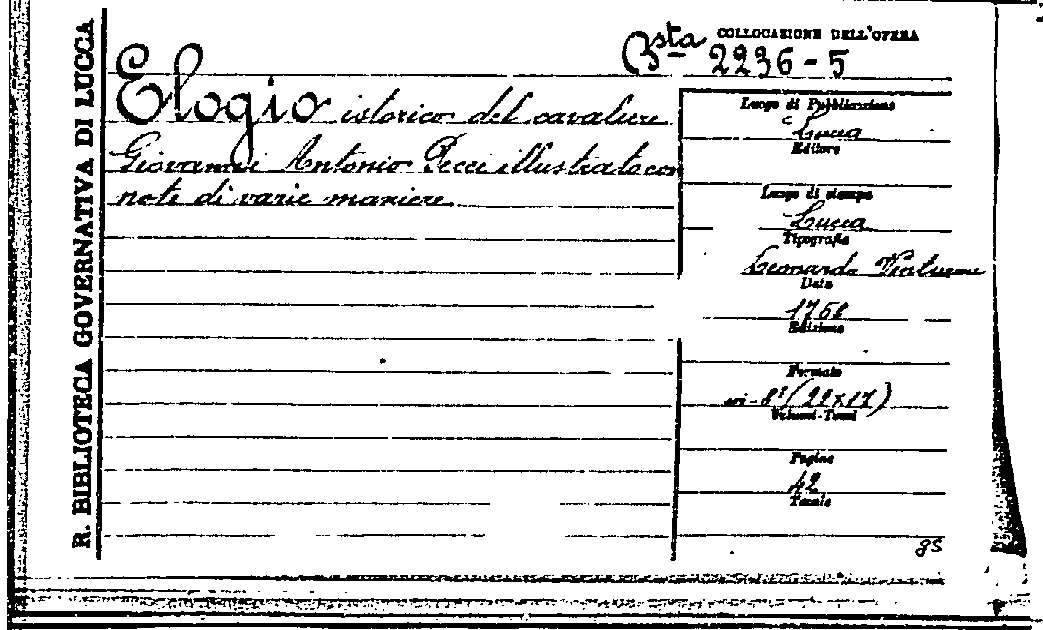 R. BIBLIOTECA GOVERNATIVA DI LUCCA
COLLOCAZIONE DELL'OPERA
Bsta 2236-5
Elogio istorico del cavaliere
Giovanni Antonio Pecci illustrato con
note di varie maniere
Luogo di Pubblicazione
Lucca
Editore
Luogo di stampa
Lucca
Tipografia
Leonardo
Data
Edizione
Formato
in-8°
Volumi-Tomi
Pagine
42
Tavole
gs